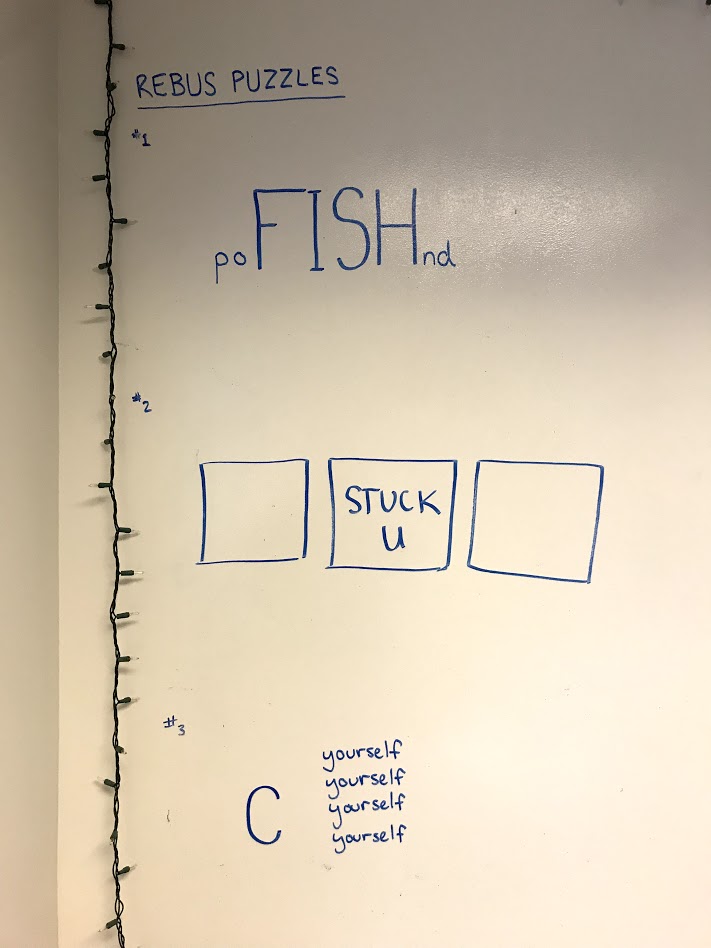 REBUS PUZZLES
#1
poFISHnd
#2
STUCK
U
#3
yourself
yourself
C
yourself
yourself